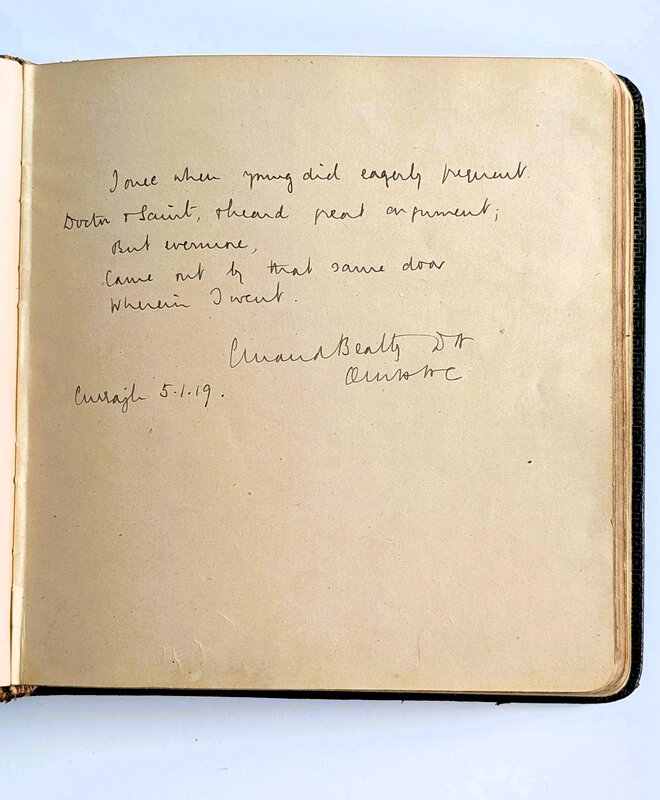 I once when young did eagerly frequent
Doctor & Saint, & heard great argument;
But evermore,
Came out by that same door
Wherein I went.
Beatty
Curragh 5.1.19.